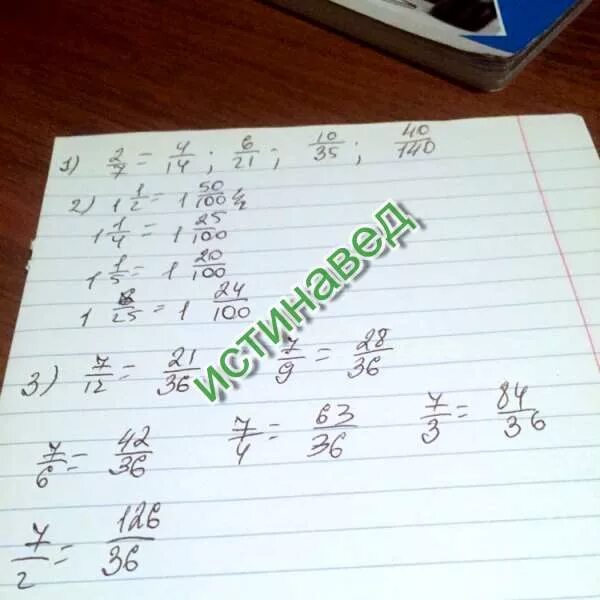 1) 2/7 = 4/14 ; 6/21 ; 10/35 ; 40/140
2) 1 1/2 = 1 50/100
1 1/4 = 1 25/100
1 1/5 = 1 20/100
1 6/25 = 1 24/100
3) 7/12 = 21/36 7/9 = 28/36
7/6 = 42/36 7/4 = 63/36 7/3 = 84/36
7/2 = 126/36
истинавед